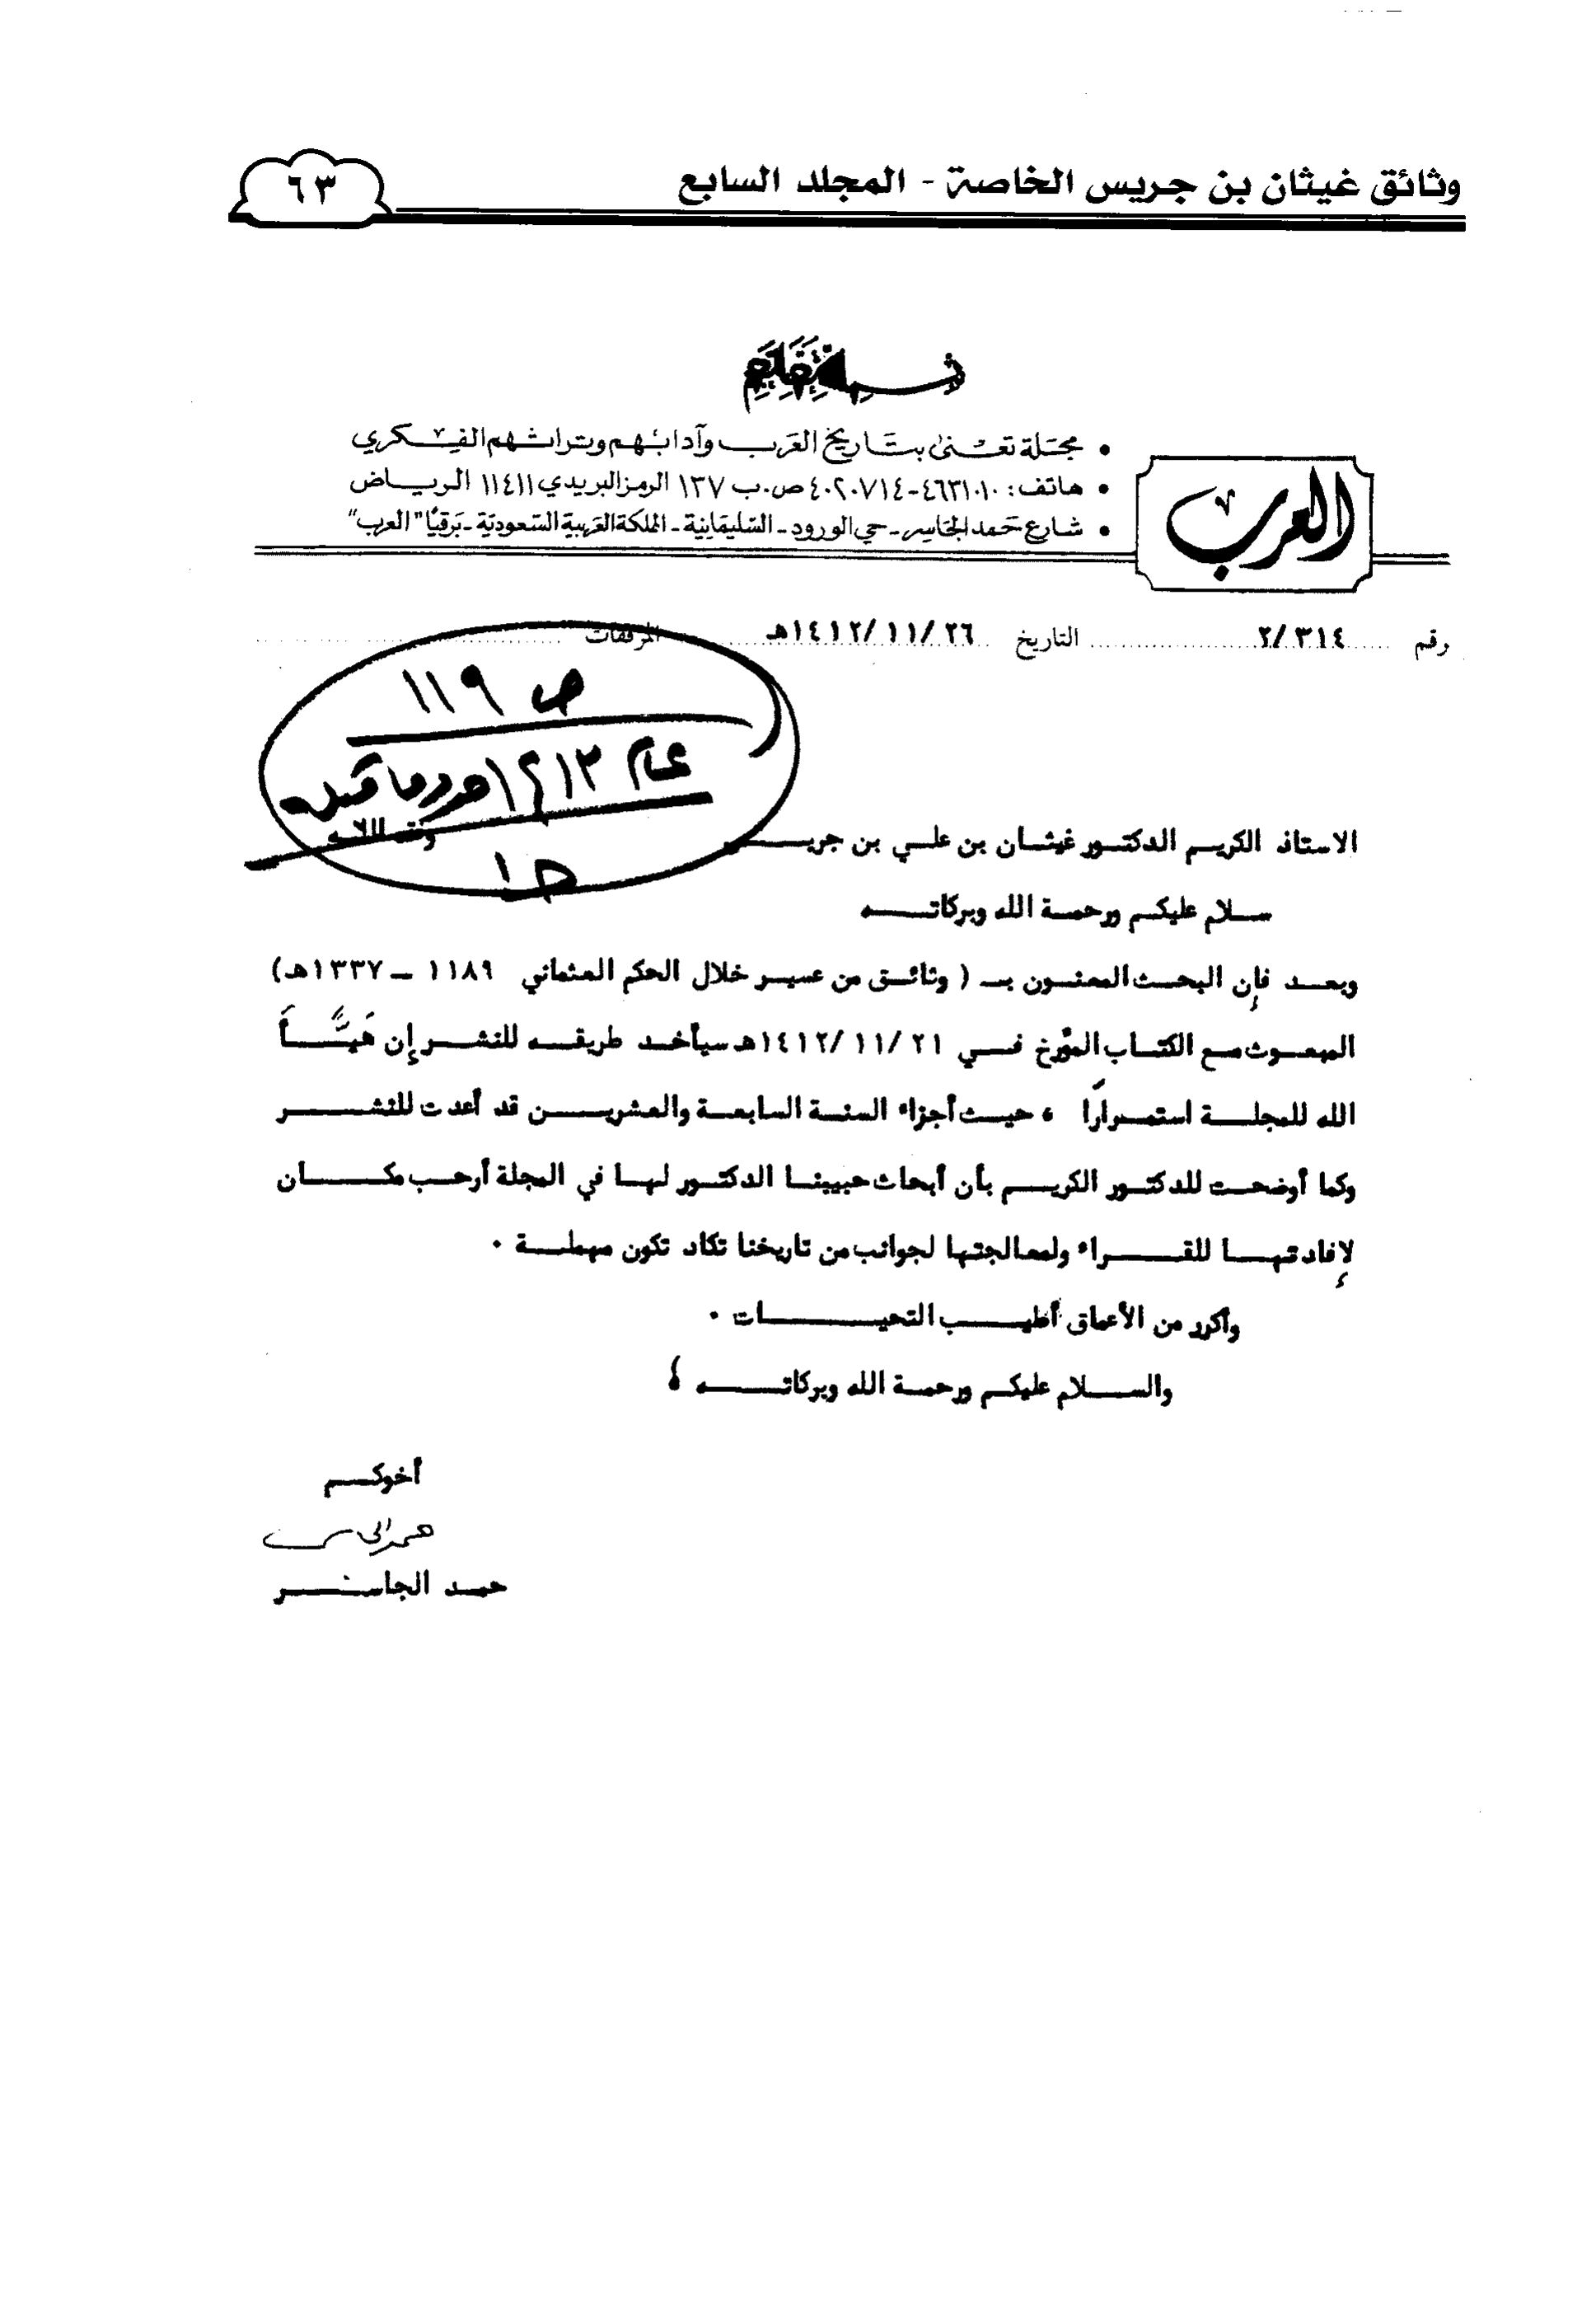 وثائق غيثان بن جريس الخاصة - المجلد السابع
٦٣
العرب
• مجلة تعنى بتاريخ العرب وآدابهم وتراثهم الفكري
• هاتف: ٤٦٣١٠١٠-٤٠٢٠٧١٤ ص.ب ١٣٧ الرمز البريدي ١١٤١١ الرياض
• شارع حمد الجاسر - حي الورود - السليمانية - المملكة العربية السعودية - برقيًا "العرب"
رقم ٢/٣١٤ التاريخ ١٤١٢/١١/٢٦هـ المرفقات
ص ١١٩
عام ١٤١٣هـ وما قبله
ج١
الاستاذ الكريم الدكتور غيثان بن علي بن جريس وفقه الله
سلام عليكم ورحمة الله وبركاته
وبعد فإن البحث المعنون بـ ( وثائق من عسير خلال الحكم العثماني ١١٨٩ - ١٣٣٧هـ)
المبعوث مع الكتاب المؤرخ في ١٤١٢/١١/٢١هـ سيأخذ طريقه للنشر إن هَيَّأَ
الله للمجلة استمرارًا ، حيث أجزاء السنة السابعة والعشرين قد أعدت للنشر
وكما أوضحت للدكتور الكريم بأن أبحاث حبيبنا الدكتور لها في المجلة أرحب مكان
لإفادتها للقراء ولمعالجتها لجوانب من تاريخنا تكاد تكون مهملة .
وأكرر من الأعماق أطيب التحيات .
والسلام عليكم ورحمة الله وبركاته ؛
أخوكم
حمد الجاسر
حمد الجاسر